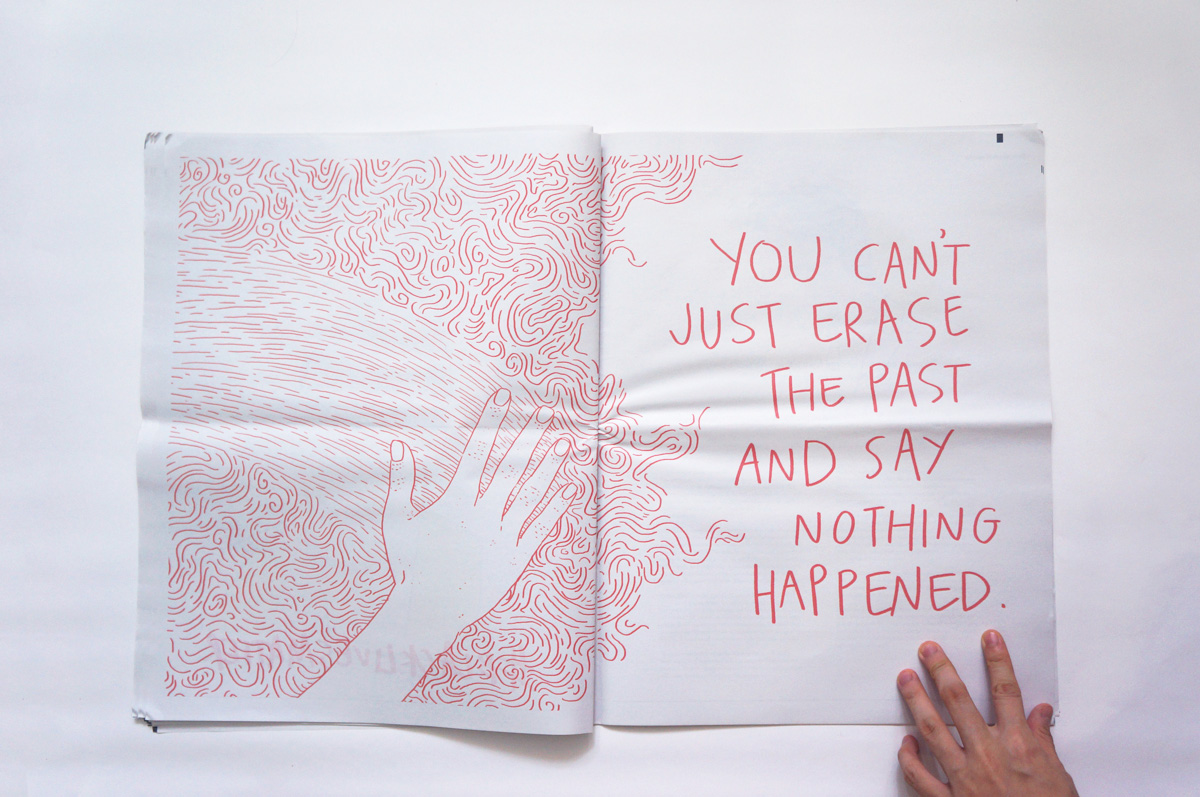 YOU CAN'T
JUST ERASE
THE PAST
AND SAY
NOTHING
HAPPENED.